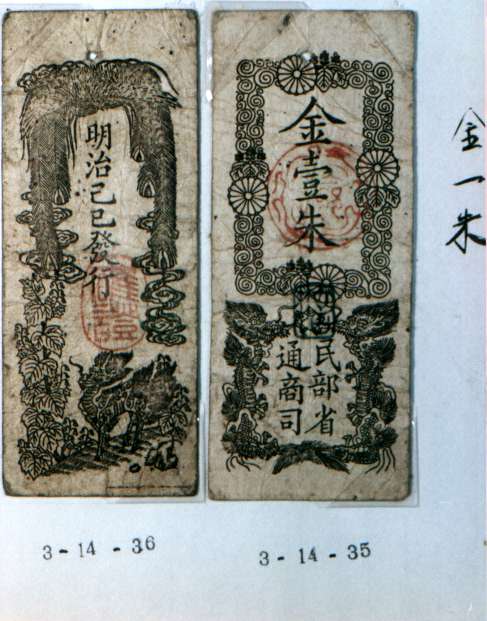 明治己巳發行
金壹朱
民部省
通商司
金一朱
3-14-36
3-14-35